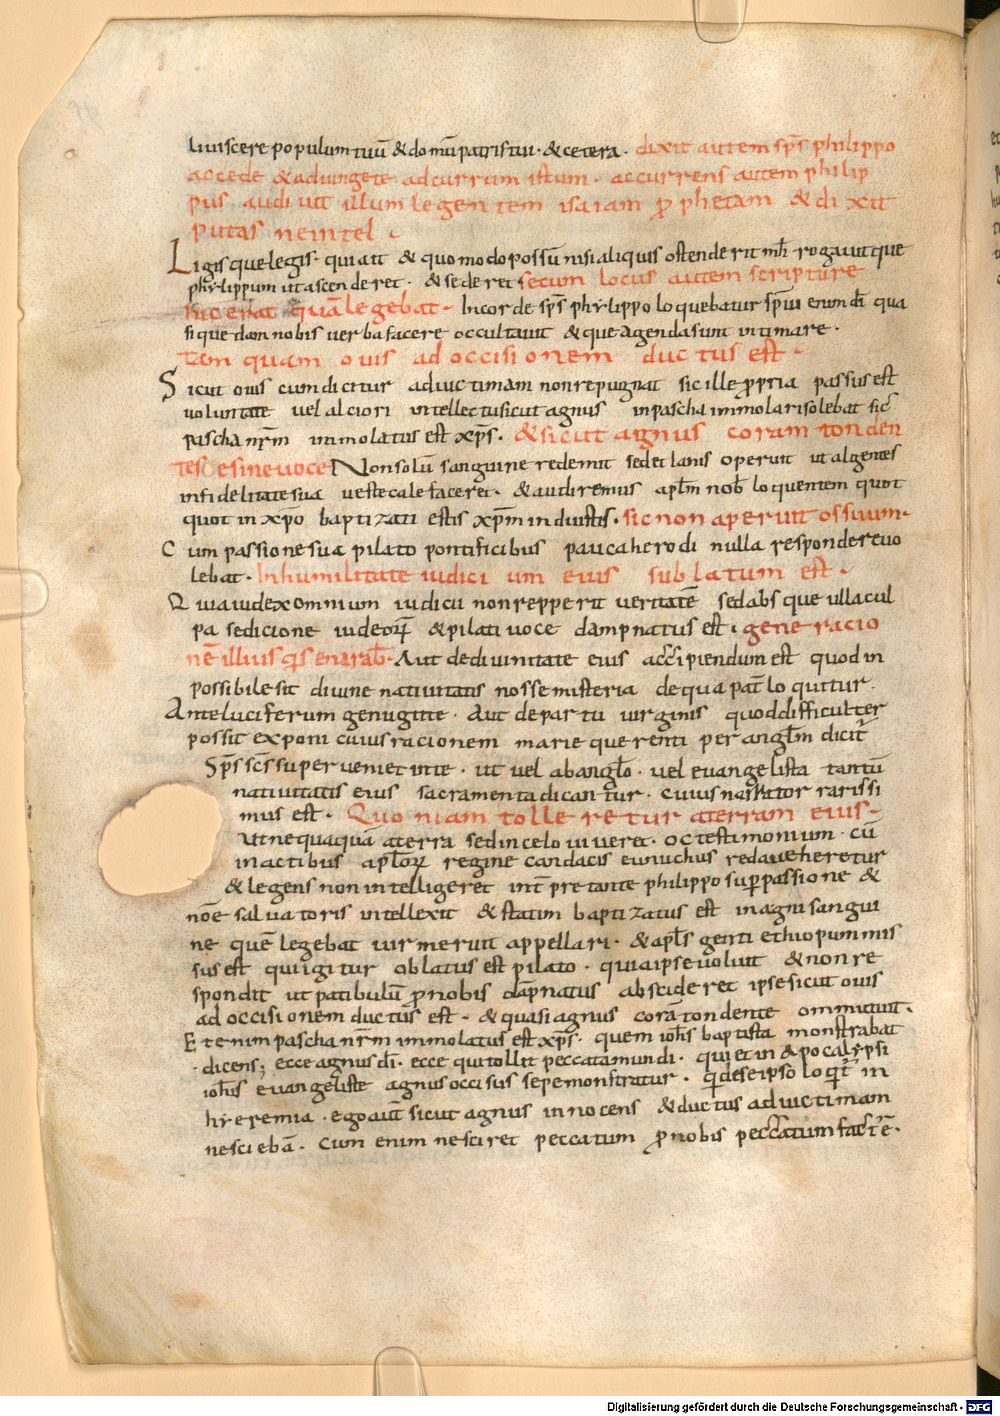 liuiscere populum tuū & domū patris tui · & cetera · dixit autem sp̄s philippo
accede & adiungete ad currum istum · accurrens autem philip
pus audiuit illum legentem isaiam ꝓphetam & dixit
putas ne intel ·
Ligis que legis · qui ait & quomodo possū nisi aliquis ostenderit mh̄i rogauitque
phylippum ut ascenderet · & sederet secum locus autem scripture
hic erat quā legebat · In corde sp̄s phylippo loquebatur sp̄ui enim dī qua
si quedam nobis verba facere occultauit & que agenda sunt intimare ·
tam quam ouis ad occisionem ductus est ·
Sicut ouis cum dicitur ad uictimam non repugnat sic ille ꝓpria passus est
uoluntate uel alciori intellectu sicut agnus in pascha immolari solebat sic̄
pascha nr̄m immolatus est xp̄s · & sicut agnus coram tonden
tes se sine uoce Non solū sanguine redemit sed et lanis operuit ut algentes
infidelitate sua ueste calefaceret · & audiremus apl̄m nob̄ loquentem quot
quot in xp̄o baptizati estis xp̄m induistis · sic non aperuit os suum ·
Cum passione sua pilato pontificibus pauca herodi nulla respondere uo
lebat · In humilitate iudicium eius sublatum est ·
Quia iudex omnium iudicii non repperit ueritatē sed absque ulla cul
pa sedicione iudeoꝝ & pilati uoce dampnatus est · generacio
nē illius q̄s enarab̄ · Aut de diuinitate eius accipiendum est quod in
possibile sit diuine natiuitatis nosse misteria de qua pat̄ loquitur ·
Ante luciferum genui te · Aut de partu uirginis quod difficulter
possit exponi cuius racionem marie querenti per angl̄m dicit̄
Sp̄s sc̄s superueniet in te · ut uel ab angl̄o · uel euangelista tantū
natiuitatis eius sacramenta dicantur · cuius narrator rarissi
mus est · Quoniam tolleretur a terram eius ·
Ut nequaquā a terra sed in celo uiueret · oc testimonium · cū
in actibus apl̄oꝝ regine candacis eunuchus redaueheretur
& legens non intelligeret int̄pretante philippo sup̄ passione &
nōe saluatoris intellexit & statim baptizatus est in agni sangui
ne quē legebat uir meruit appellari · & apl̄s genti ethiopum mis
sus est qui igitur oblatus est pilato · quia ipse uoluit & non re
spondit ut patibulū ꝓ nobis dāpnatus abscideret ipse sicut ouis
ad occisionem ductus est · & quasi agnus corā tondente ommutuit ·
Etenim pascha nr̄m immolatus est xp̄s · quem ioh̄s baptista monstrabat
· dicens ; ecce agnus dī · ecce qui tollit peccata mundi · qui et in apocalypsi
ioh̄is euangeliste agnus occisus sepe monstratur · q̄ de se ipso loq̄t̄ in
hyeremia · ego aut̄ sicut agnus innocens & ductus ad uictimam
nesciebā · cum enim nesciret peccatum ꝓ nobis peccatum fact̄ ē ·
Digitalisierung gefördert durch die Deutsche Forschungsgemeinschaft - DFG